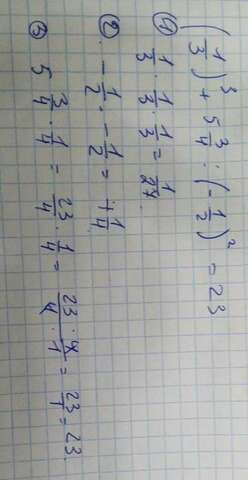 (1/3)³ + 5 3/4 : (-1/2)² = 23
① 1/3 · 1/3 · 1/3 = 1/27.
② -1/2 · -1/2 = +1/4
③ 5 3/4 · 1/4 = 23/4 · 1/4 = 23 · 4/4 · 1 = 23/1 = 23.